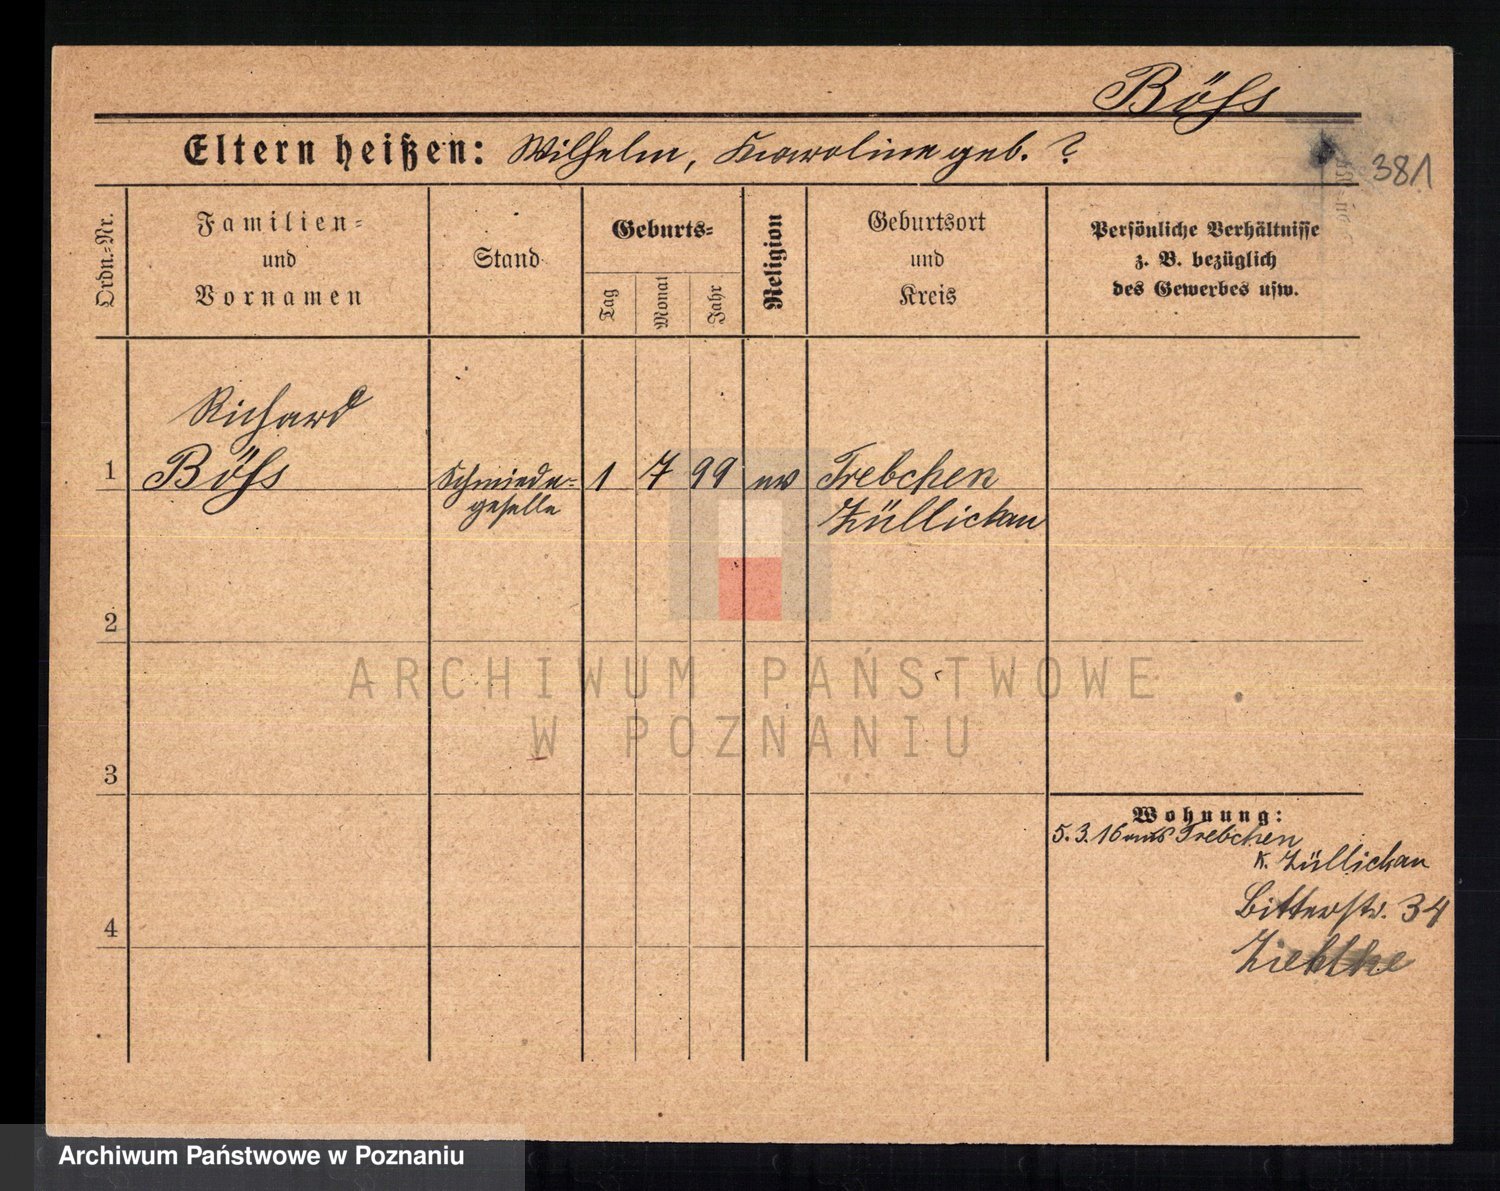 Böhs
Eltern heißen: Wilhelm, Karoline geb. ?
381
Ordn.-Nr.
Familien-
und
Vornamen
Stand
Geburts-
Tag
Monat
Jahr
Religion
Geburtsort
und
Kreis
Persönliche Verhältnisse
z. B. bezüglich
des Gewerbes usw.
Richard
1 Böhs Schmiede- 1 7 99 ev Trebchen
geselle Züllichau
2
3
Wohnung:
5.3.16 aus Trebchen
K. Züllichau
4
Bitterstr. 34
ARCHIWUM PAŃSTWOWE
W POZNANIU
Archiwum Państwowe w Poznaniu